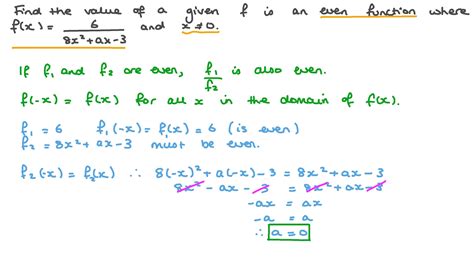 Find the value of a given f is an even function where
f(x) = 6/(8x²+ax-3) and x≠0.
If f₁ and f₂ are even, f₁/f₂ is also even.
f(-x) = f(x) for all x in the domain of f(x).
f₁ = 6 f₁(-x) = f₁(x) = 6 (is even)
f₂ = 8x² + ax - 3 must be even.
f₂(-x) = f₂(x) ∴ 8(-x)² + a(-x) - 3 = 8x² + ax - 3
8x² - ax - 3 = 8x² + ax - 3
-ax = ax
-a = a
∴ a = 0